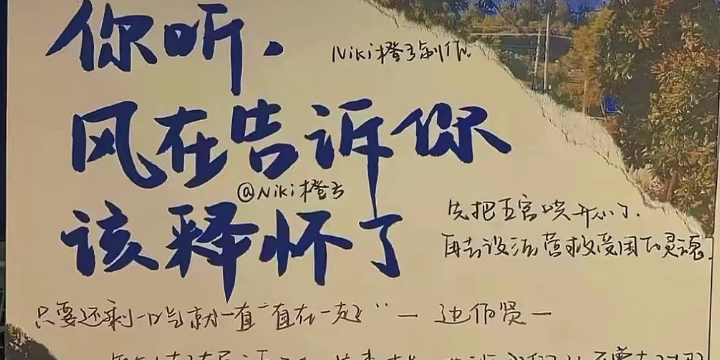 你听.
Niki橙子制作
风在告诉你
@Niki橙子
该释怀了
先把五官哄开心了.
再去设法营救受困的灵魂.
只要还剩一口气就一直一直在一起" — 边伯贤 —